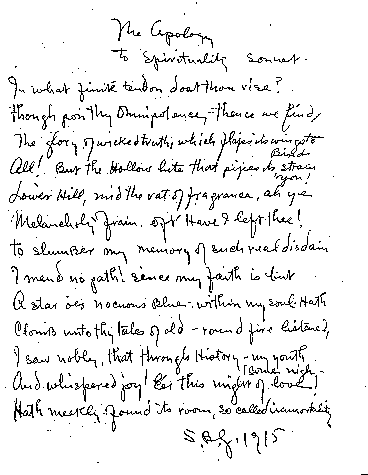 The Apology
To Spirituality Sonnet.
In what finite tendon dost thou rise?
Though posit thy Omnipotency - thence we find,
The glory of wicked truth, which its wings to
Bind
All! But the Hollow lute that its strain
Lower Hill, mid the vat of fragrance, ah ye
Melancholy frain, oft Have I left thee!
To slumber my memory of such real disdain
I mend no path! Since my faith is but
A star o'er nocuous Blue - within my soul Hath
Climb unto thy tales of old - round fire listened,
I saw nobly, that through History - my youth
come nigh -
And whispered joy! this might of love!
Hath meekly found its room, so called immortality
1915